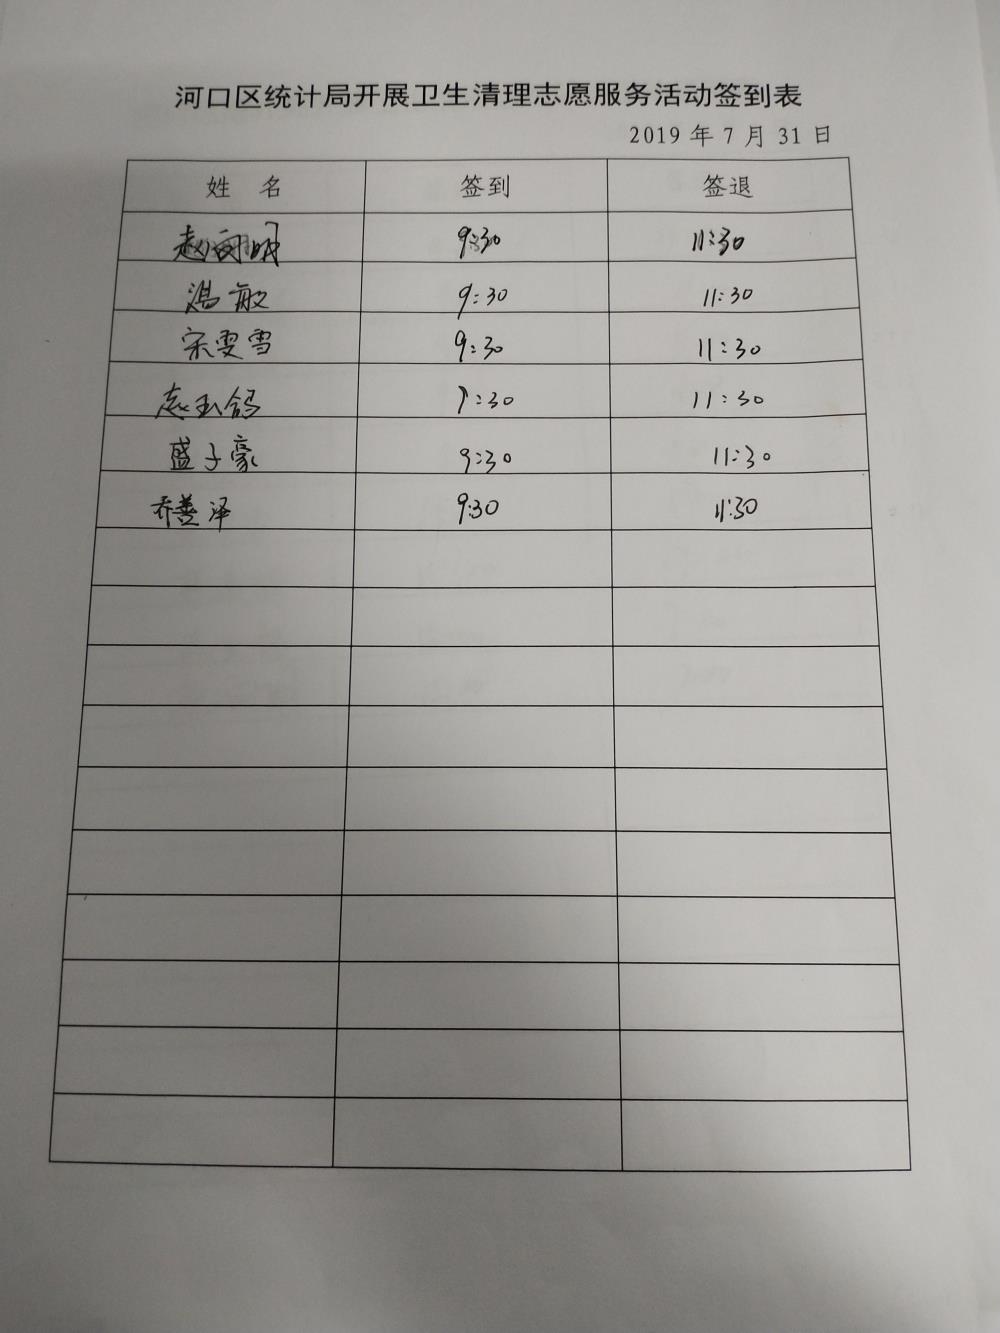 河口区统计局开展卫生清理志愿服务活动签到表
2019 年 7 月 31 日
姓 名 签到 签退
赵丽明 9:30 11:30
温敏 9:30 11:30
宋雯雪 9:30 11:30
9:30 11:30
盛子豪 9:30 11:30
乔善泽 9:30 11:30